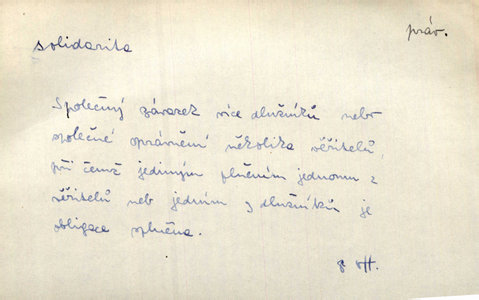 práv.
solidarita
Společný závazek více dlužníků nebo
společné oprávnění několika věřitelů,
při čemž jediným plněním jednomu z
věřitelů neb jedním z dlužníků je
obligace splněna.